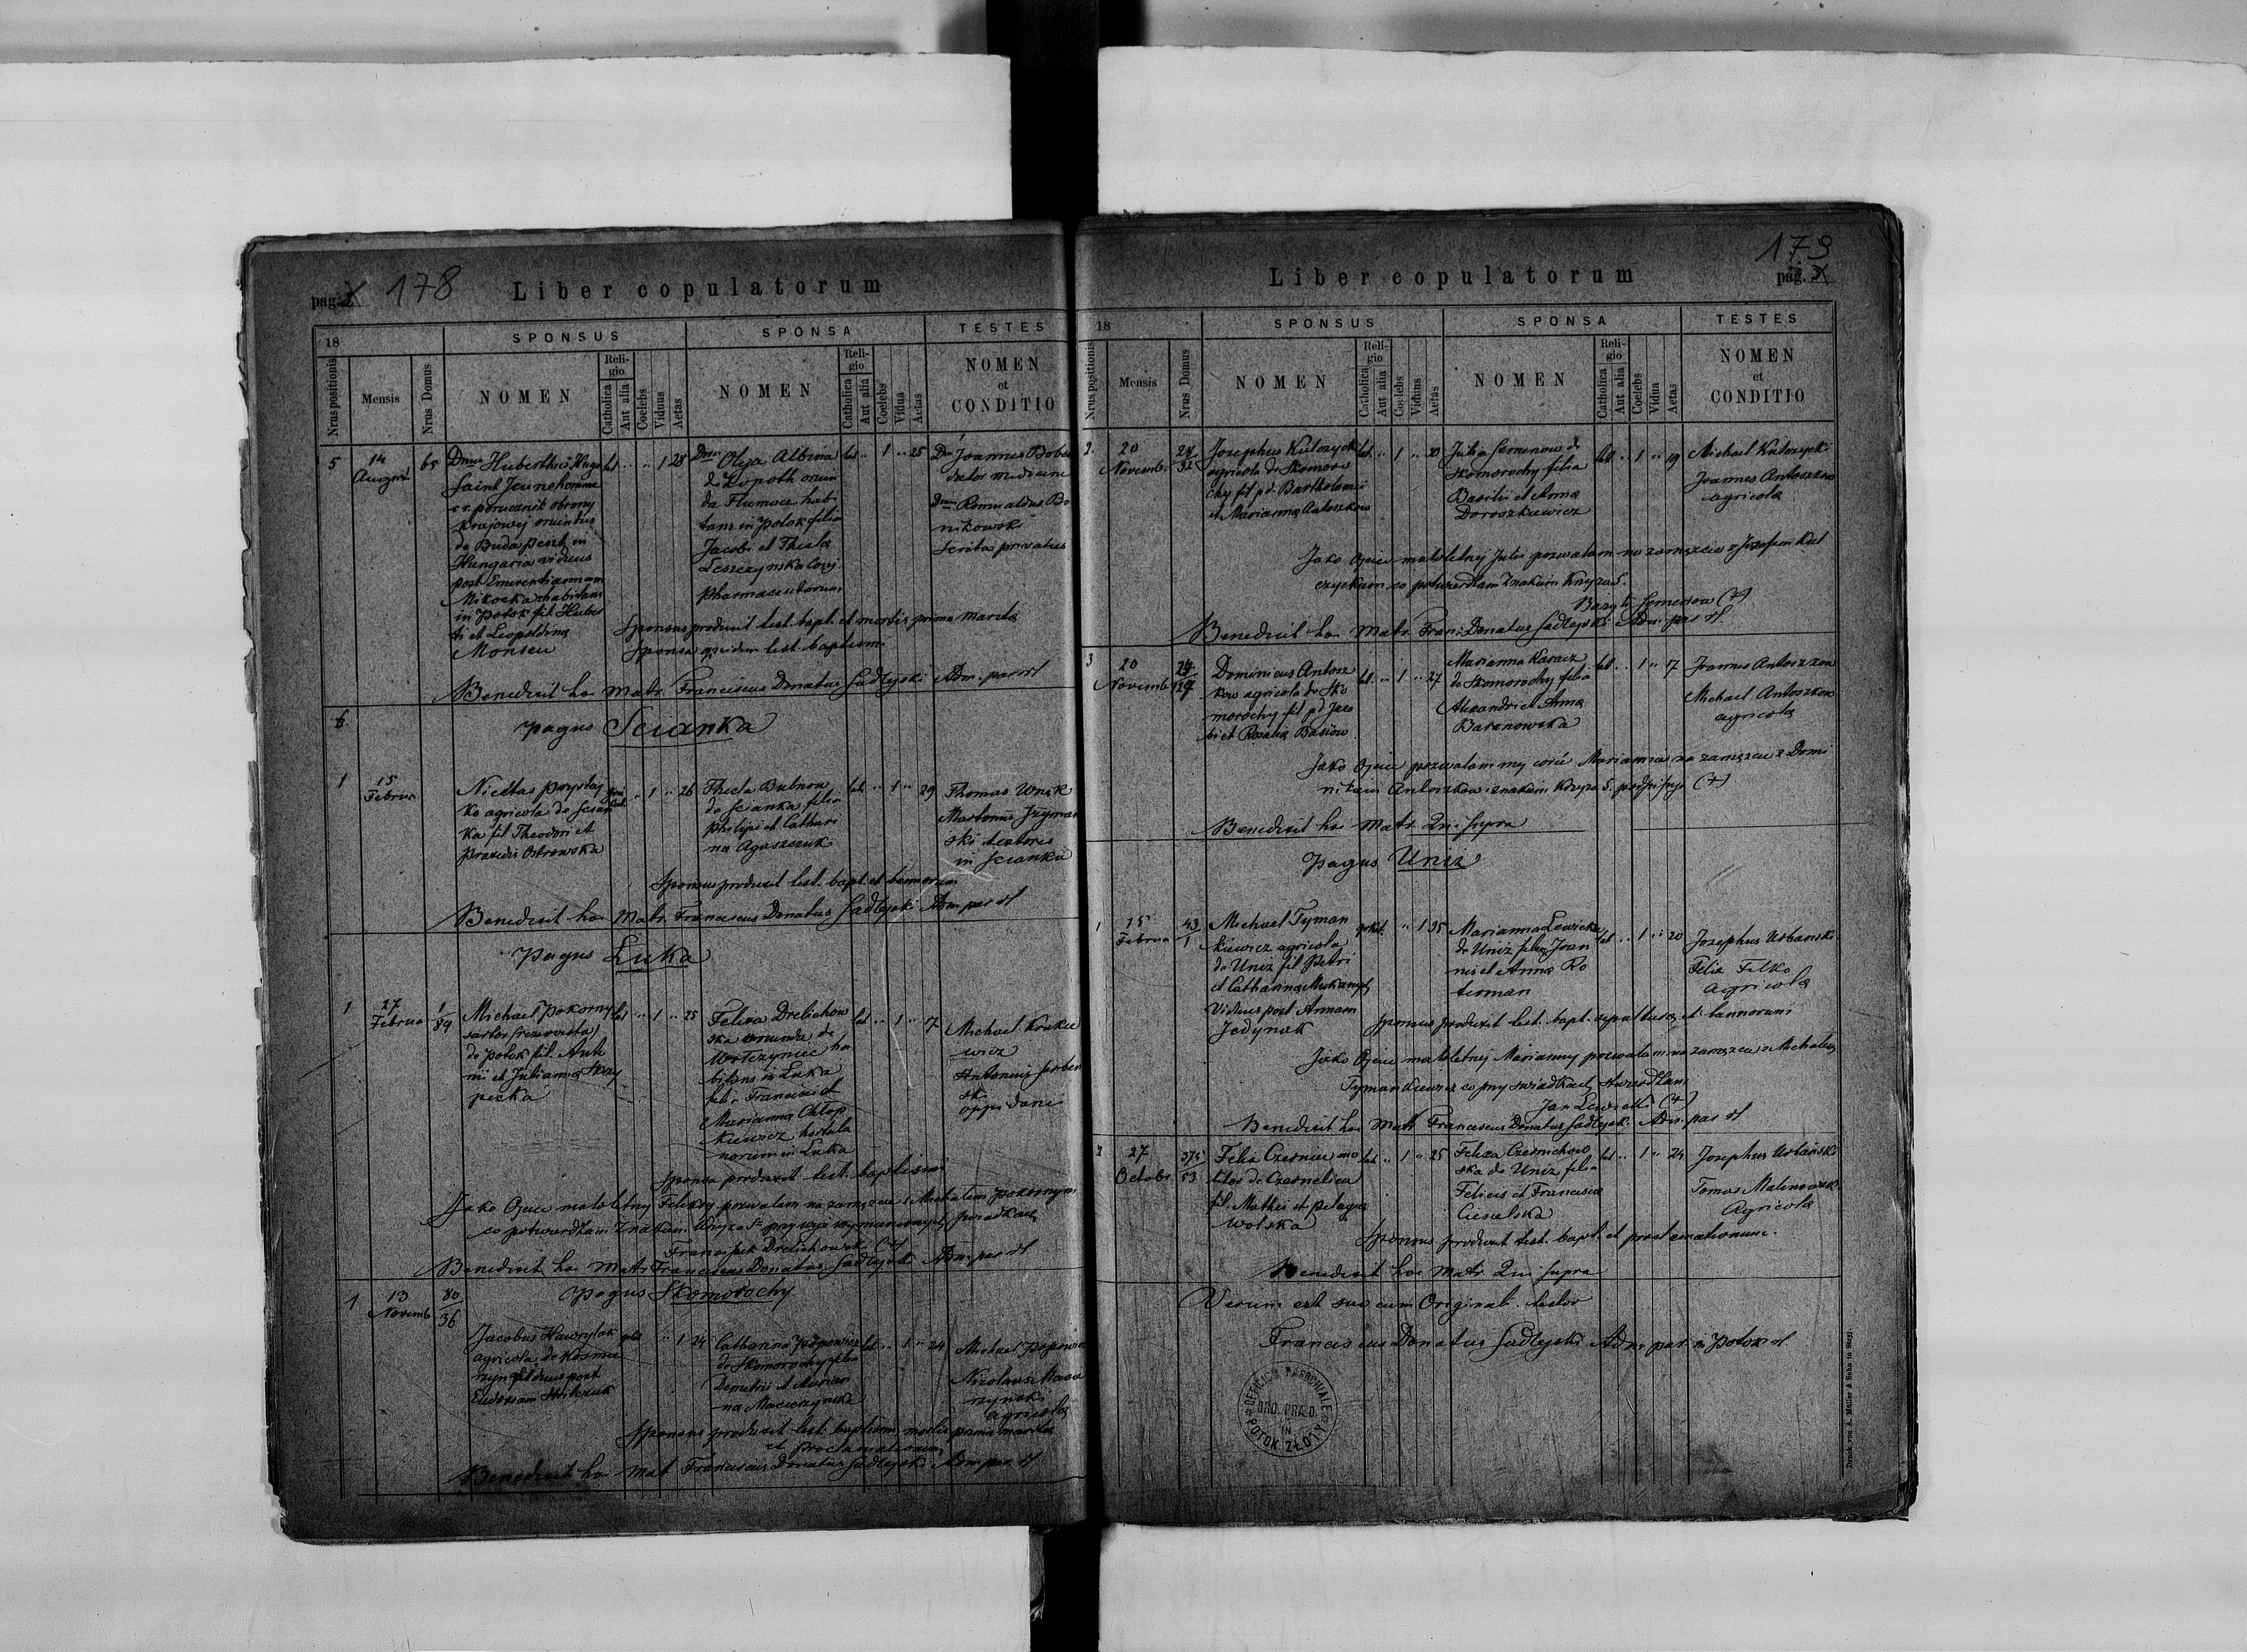 pag. 178
Liber copulatorum
18
SPONSUS
SPONSA
TESTES
Nrus positionis
Mensis
Nrus Domus
NOMEN
Religio
Catholica
Aut alia
Coelebs
Viduus
Aetas
NOMEN
Religio
Catholica
Aut alia
Coelebs
Vidua
Aetas
NOMEN
et
CONDITIO
5
14
August
65
Dnus Huberthus Hugo
Saint Jeunehomme
c. r. porucznik obrony
Krajowej oriundus
de Buda peszt in
Hungaria viduus
post Emerentiannam
habitans
in Potok fil Huber
ti et Leopoldina
Monseu
lat
1 28
Olga Albina
de Lopoth oriun
da habi
tans in Potok filia
Jacobi et Thecla
Leszczynska conj
pharmaceutorum
lat
1
25
Joannes
medicine
Romualdus Bo
nikowski
scriba privatus
Sponsus produxit test. bapt. et mortis prima marita
Sponsa test. baptismi
Benedixit hoc Matr. Franciscus Donatus Sadlejski Adm. par
6
pagus Scianka
1
15
Februa
ko agricola de Scian
ka fil Theodori et
praxedis Ostrowska
1
26
Thecla Bubnow
de Scianka filia
Philipi et Cathari
na Agaszczuk
lat
1
29
Thomas Wnuk
Martinus Szyman
ski testores
in Scianka
Sponsus produxit test. bapt. et bannorum
Benedixit hoc Matr. Franciscus Donatus Sadlejski Adm par
Pagus Luka
1
27
Februa
1
89
Michael Pokorny
sartor (reservista)
de Potok fil. Anto
nii et Julianna Skrzy
pecka
lat
1
25
Felixa Drelichow
ska oriunda de
Wolczyniec ha
bitans in Luka
filia Francisci et
Marianna Chłop
kiewicz hortula
norum in Luka
lat
1
17
Michael Kruke
wicz
Antonius Serben
sk
oppidani
Sponsa produxit test. baptismi
Jako Ojciec małoletniej Felixy pozwalam na zamęzcie z Michałem Pokornym
co potwierdzam Znakiem Krzyza Ś przy wyż wymienionych świadkach
Franciszek Drelichowski (+)
Benedixit hoc Matr Franciscus Donatus Sadlejski Adm par
1
13
Novemb
80
36
pagus Skomorochy
Jacobus Hawrylak
agricola de Kosmie
rzyn viduus post
Eudoxiam
1 24
Catharina Popowicz
de Skomorochy filia
Demetrii et Marian
na Maierzynska
lat
1
24
Michael Popowicz
Nicolaus
agricola
Sponsus produxit test. baptismi mortis prima marita
et proclamationum
Benedixit hoc Mat Franciscus Donatus Sadlejski Adm par
179
pag. 3
Liber copulatorum
18
SPONSUS
SPONSA
TESTES
Nrus positionis
Mensis
Nrus Domus
NOMEN
Religio
Catholica
Aut alia
Coelebs
Viduus
Aetas
NOMEN
Religio
Catholica
Aut alia
Coelebs
Vidua
Aetas
NOMEN
et
CONDITIO
2
20
Novemb.
Josephus Kulczycki
agricola de Skomoro
chy fil pd. Bartholomei
et Marianna Antoszkow
lat
1
Julia Semenow de
Skomorochy filia
Basilii et Anna
Doroszkiewicz
lat
1
19
Michael Kulczycki
Joannes Antoszkow
agricola
Jako Ojciec małoletniej Julii pozwalam na zamęzcie z Józefem Kul
czyckim co potwierdzam Znakiem Krzyza Ś.
Bazyli Semenow (+)
Benedixit hoc Matr. Franc: Donatus Sadlejski Adm par
3
20
Novemb
24
Dominicus Antosz
kow agricola de Sko
morochy fil pd Jaco
bi et Rosalia Basiow
lat
1
27
Marianna Karacz
de Skomorochy filia
Alexandri et Anna
Baranowska
lat
1
17
Joannes Antoszkow
Michael Antoszkow
agricola
Jako Ojciec pozwalam mej córce Mariannie na zamęzcie z Domi
nikiem Antoszkow znakiem Krzyza Ś. podpisuję (+)
Benedixit hoc Matr. Qui Supra
Pagus Uniz
1
15
Februa
43
1
Michael Tyman
kiewicz agricola
de Uniz fil Petri
et Catharina
Viduus post Annam
Jedynak
1 35
Marianna Lewicka
de Uniz filia Joan
nis et Anna Ro
terman
lat
1
20
Josephus Urbanski
Felix Filko
Agricola
Sponsus produxit test. bapt. sepultura et bannorum
Jako Ojciec małoletniej Marianny pozwalam na zamęzcie z Michałem
Tymankiewicz co przy swiadkach stwierdzam
Jan Lewicki (+)
Benedixit hoc Matr Franciscus Donatus Sadlejski Adm. par
2
27
Octobr
375
53
Felix Czerniec mo
litor de Czernelica
fil. Mathei et Pelagia
Wolska
lat
1
25
Felixa Czernichow
ska de Uniz filia
Felicis et Francisca
Ciesielska
lat
1
24
Josephus Urbański
Tomas Malinowski
Agricola
Sponsus produxit test. bapt. et proclamationum.
Benedixit hoc Matr. Qui Supra
Verum est suo cum Originali testor
Franciscus Donatus Sadlejski Adm par. in Potok
OFFICIUM PAROCHIALE
IN
POTOK ZŁOTY
Druck von A. Müller & Sohn in Stryj.